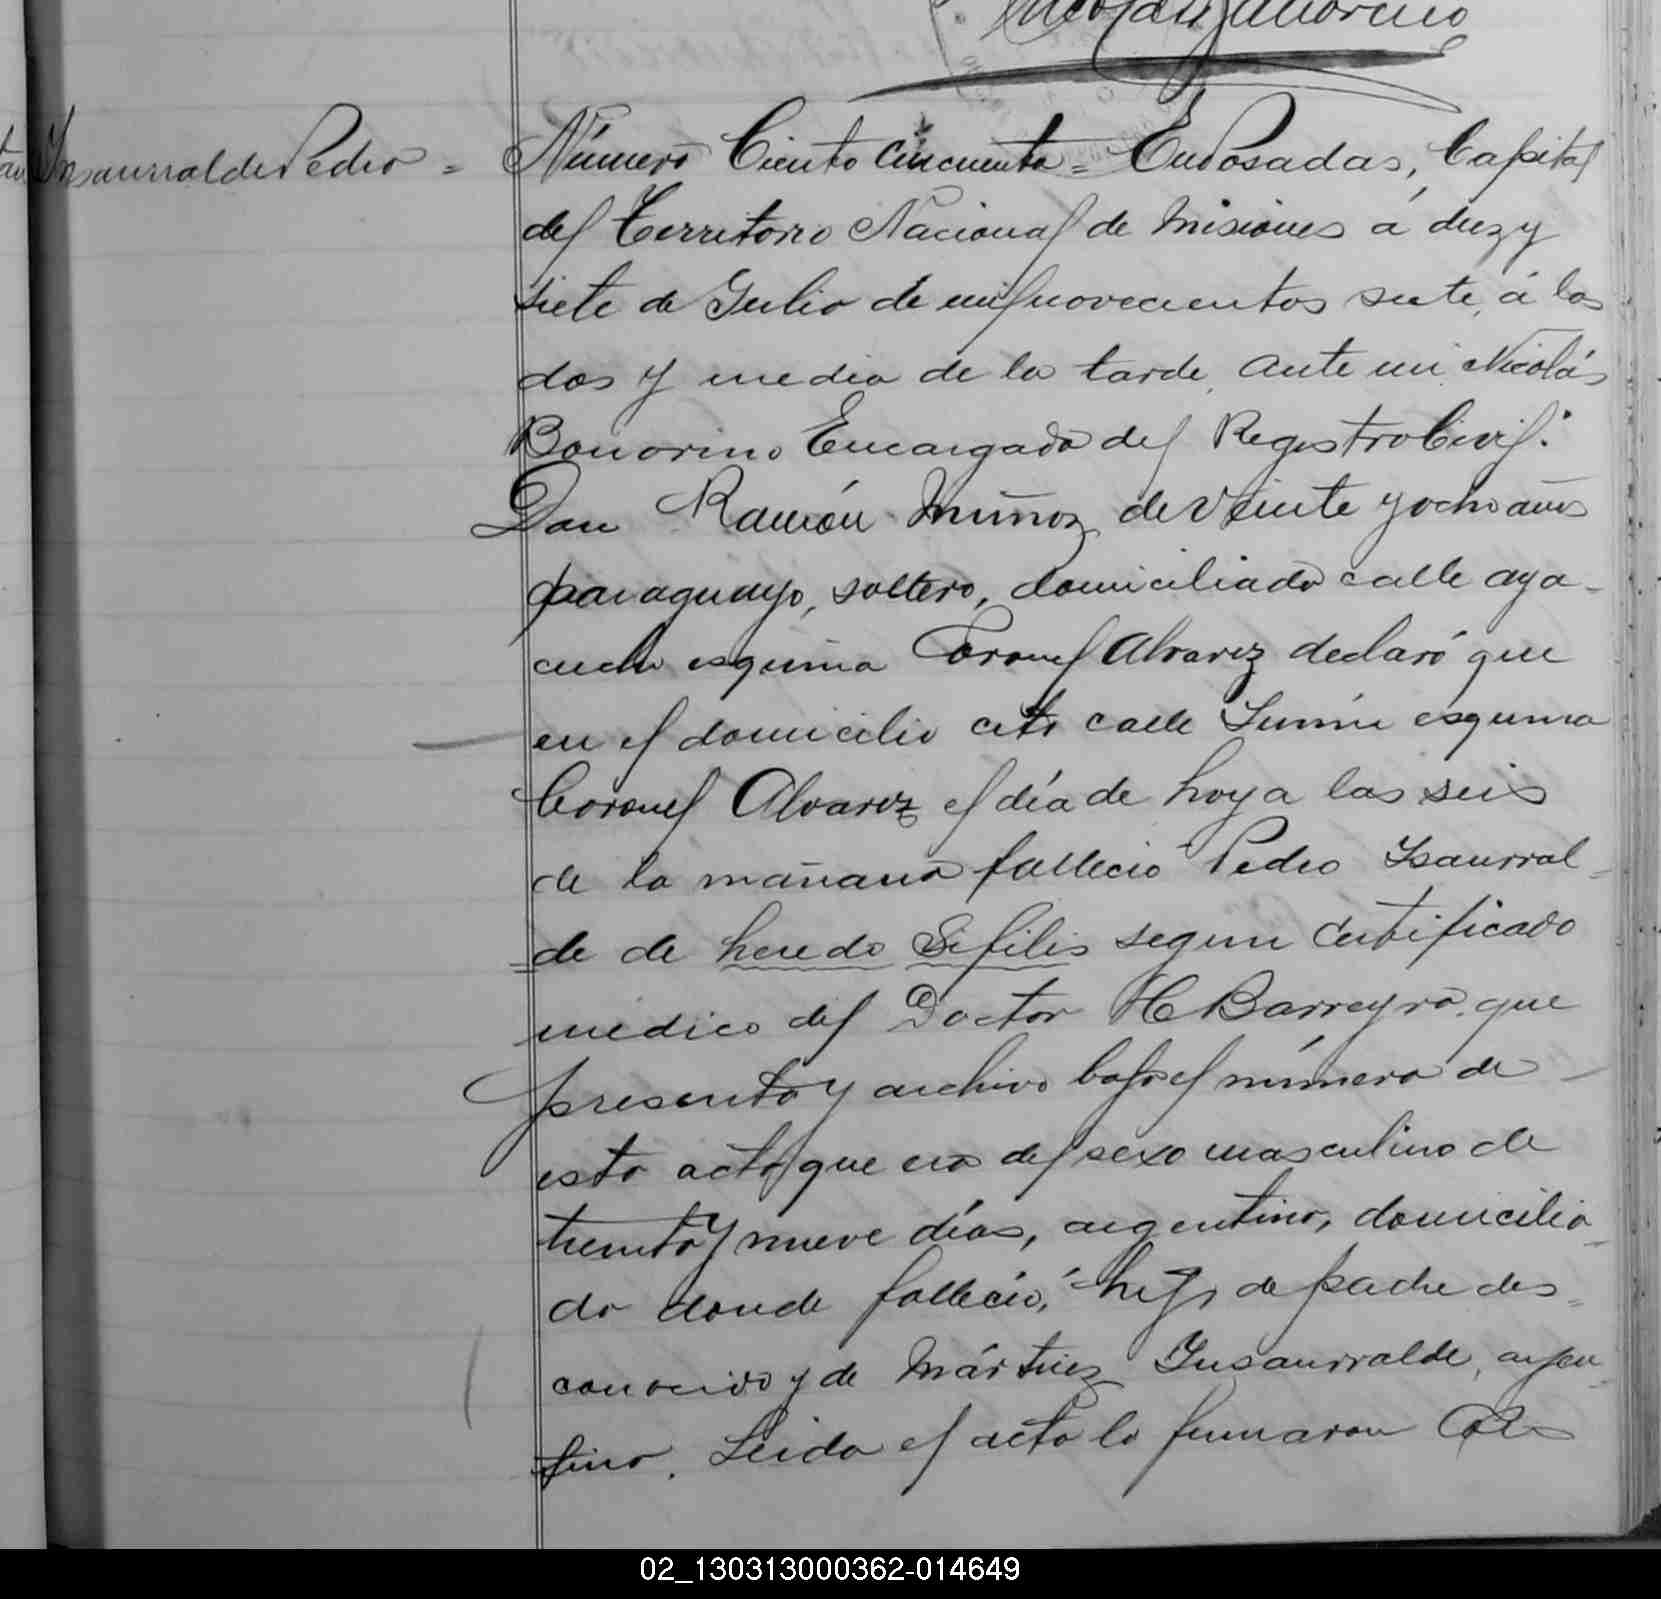 Nicolás Bonorino
Insaurralde Pedro =
Número Ciento Cincuenta = En Posadas, Capital
del Territorio Nacional de Misiones á diez y
siete de Julio de mil novecientos siete, á las
dos y media de la tarde, ante mi Nicolás
Bonorino Encargado del Registro Civil:
Don Ramón Muñoz de Veinte y ocho años
paraguayo, soltero, domiciliado calle aya-
cucho esquina Coronel Alvarez declaró que
en el domicilio cito calle Junin esquina
Coronel Alvarez el día de hoy a las seis
de la mañana fallecio Pedro Isaurral-
=de de heredo Sifilis segun certificado
medico del Doctor H Barreyro, que
presento y archivo bajo el número de
esta acta, que era del sexo masculino de
treinta y nueve días, argentino, domicilia-
do donde falleció, hijo de padre des-
conocido y de Mártires Insaurralde, argen-
tino. Leida el acta la firmaron con
02_130313000362-014649